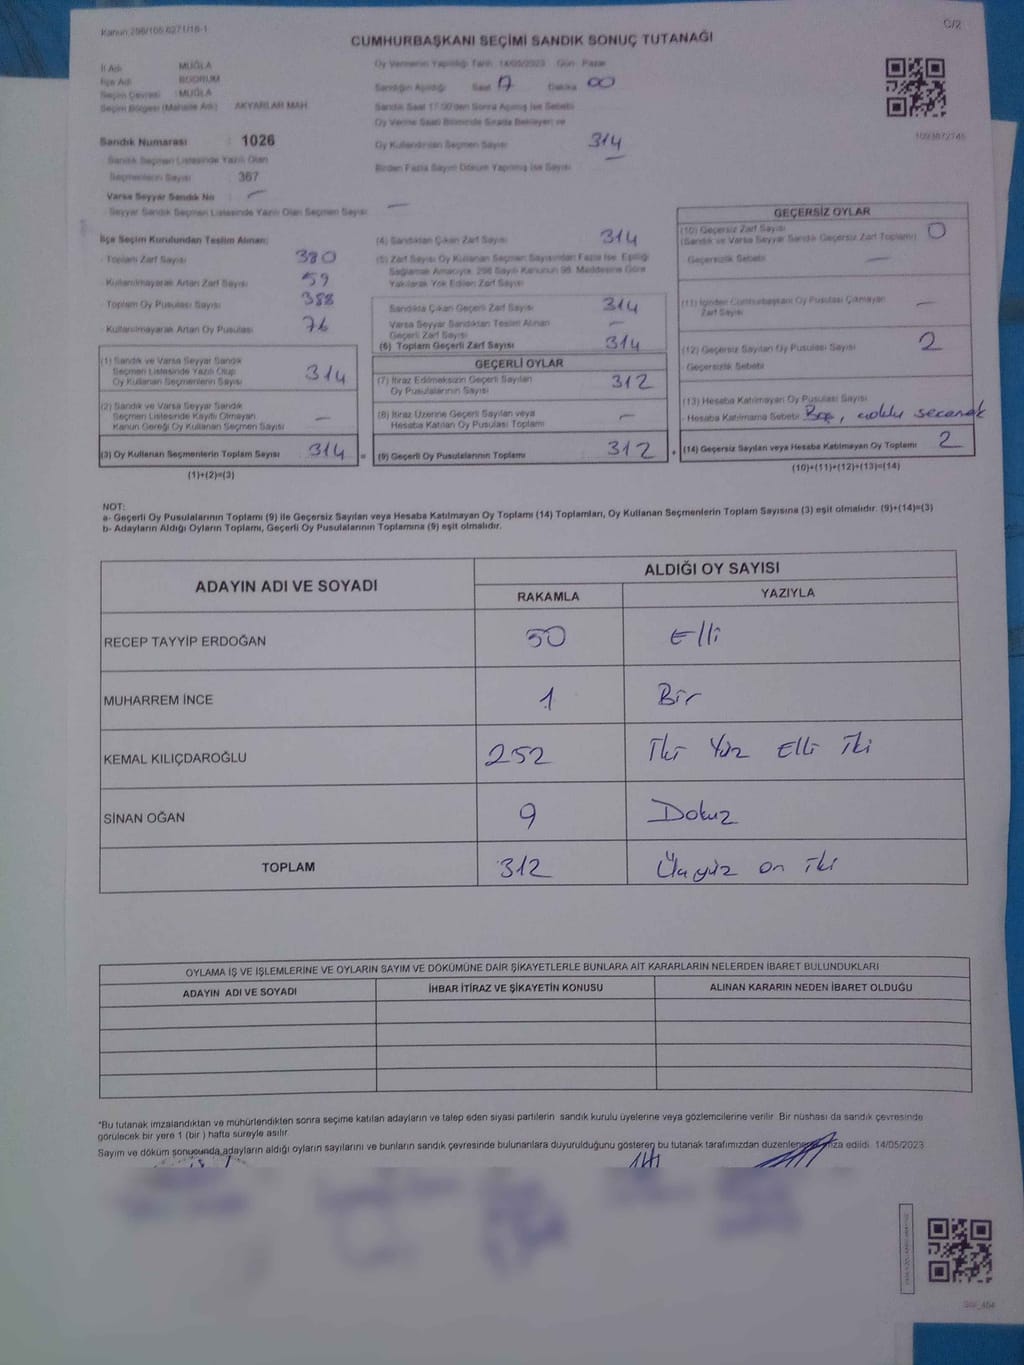 Kanun:298/105,6271/18-1
C/2
CUMHURBAŞKANI SEÇİMİ SANDIK SONUÇ TUTANAĞI
İl Adı MUĞLA
İlçe Adı BODRUM
Seçim Çevresi : MUĞLA
Seçim Bölgesi (Mahalle Adı) AKYARLAR MAH
Oy Vermenin Yapıldığı Tarih 14/05/2023 Gün Pazar
Sandığın Açıldığı Saat 17 Dakika 00
Sandık Saat 17:00'den Sonra Açılmış İse Sebebi
Oy Verme Saati Bitiminde Sırada Bekleyen ve
Oy Kullandırılan Seçmen Sayısı 314
Birden Fazla Sayım Döküm Yapılmış İse Sayısı
1093872745
Sandık Numarası : 1026
Sandık Seçmen Listesinde Yazılı Olan
Seçmenlerin Sayısı 367
Varsa Seyyar Sandık No —
Seyyar Sandık Seçmen Listesinde Yazılı Olan Seçmen Sayısı —
İlçe Seçim Kurulundan Teslim Alınan:
- Toplam Zarf Sayısı 380
- Kullanılmayarak Artan Zarf Sayısı 59
- Toplam Oy Pusulası Sayısı 388
- Kullanılmayarak Artan Oy Pusulası 76
(1) Sandık ve Varsa Seyyar Sandık
Seçmen Listesinde Yazılı Olup
Oy Kullanan Seçmenlerin Sayısı 314
(2) Sandık ve Varsa Seyyar Sandık
Seçmen Listesinde Kayıtlı Olmayan
Kanun Gereği Oy Kullanan Seçmen Sayısı —
(3) Oy Kullanan Seçmenlerin Toplam Sayısı 314 =
(1)+(2)=(3)
(4) Sandıktan Çıkan Zarf Sayısı 314
(5) Zarf Sayısı Oy Kullanan Seçmen Sayısından Fazla İse, Eşitliği
Sağlamak Amacıyla, 298 Sayılı Kanunun 98. Maddesine Göre
Yakılarak Yok Edilen Zarf Sayısı
Sandıkta Çıkan Geçerli Zarf Sayısı 314
Varsa Seyyar Sandıktan Teslim Alınan
Geçerli Zarf Sayısı —
(6) Toplam Geçerli Zarf Sayısı 314
GEÇERLİ OYLAR
(7) İtiraz Edilmeksizin Geçerli Sayılan
Oy Pusulalarının Sayısı 312
(8) İtiraz Üzerine Geçerli Sayılan veya
Hesaba Katılan Oy Pusulası Toplamı —
(9) Geçerli Oy Pusulalarının Toplamı 312 +
GEÇERSİZ OYLAR
(10) Geçersiz Zarf Sayısı
(Sandık ve Varsa Seyyar Sandık Geçersiz Zarf Toplamı) 0
Geçersizlik Sebebi —
(11) İçinden Cumhurbaşkanı Oy Pusulası Çıkmayan
Zarf Sayısı —
(12) Geçersiz Sayılan Oy Pusulası Sayısı 2
- Geçersizlik Sebebi
(13) Hesaba Katılmayan Oy Pusulası Sayısı
- Hesaba Katılmama Sebebi Boş, çoklu seçenek
(14) Geçersiz Sayılan veya Hesaba Katılmayan Oy Toplamı 2
(10)+(11)+(12)+(13)=(14)
NOT:
a- Geçerli Oy Pusulalarının Toplamı (9) ile Geçersiz Sayılan veya Hesaba Katılmayan Oy Toplamı (14) Toplamları, Oy Kullanan Seçmenlerin Toplam Sayısına (3) eşit olmalıdır. (9)+(14)=(3)
b- Adayların Aldığı Oyların Toplamı, Geçerli Oy Pusulalarının Toplamına (9) eşit olmalıdır.
ADAYIN ADI VE SOYADI
ALDIĞI OY SAYISI
RAKAMLA YAZIYLA
RECEP TAYYİP ERDOĞAN 50 Elli
MUHARREM İNCE 1 Bir
KEMAL KILIÇDAROĞLU 252 İki Yüz Elli iki
SİNAN OĞAN 9 Dokuz
TOPLAM 312 Üçyüz on iki
OYLAMA İŞ VE İŞLEMLERİNE VE OYLARIN SAYIM VE DÖKÜMÜNE DAİR ŞİKAYETLERLE BUNLARA AİT KARARLARIN NELERDEN İBARET BULUNDUKLARI
ADAYIN ADI VE SOYADI İHBAR İTİRAZ VE ŞİKAYETİN KONUSU ALINAN KARARIN NEDEN İBARET OLDUĞU
*Bu tutanak imzalandıktan ve mühürlendikten sonra seçime katılan adayların ve talep eden siyasi partilerin sandık kurulu üyelerine veya gözlemcilerine verilir. Bir nüshası da sandık çevresinde
görülecek bir yere 1 (bir ) hafta süreyle asılır.
Sayım ve döküm sonucunda adayların aldığı oyların sayılarını ve bunların sandık çevresinde bulunanlara duyurulduğunu gösteren bu tutanak tarafımızdan düzenlenerek imza edildi. 14/05/2023